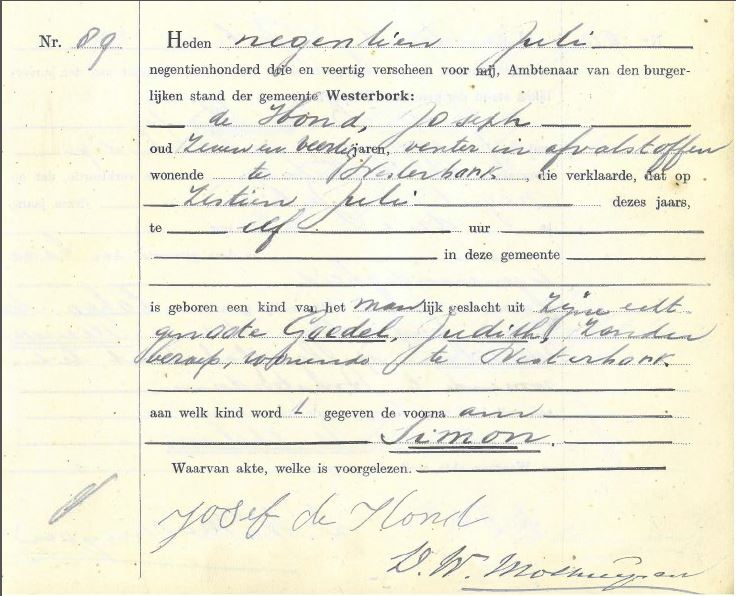 Nr. 89
Heden negentien Juli
negentienhonderd drie en veertig verscheen voor mij, Ambtenaar van den burger-
lijken stand der gemeente Westerbork:
de Hond, Joseph
oud zeven en veertig jaren, venter in afvalstoffen
wonende te Westerbork die verklaarde, dat op
zestien Juli dezes jaars,
te elf uur
in deze gemeente
is geboren een kind van het mannlijk geslacht uit zijne echt-
genoote Goedel, Judith, zonder
beroep, wonende te Westerbork.
aan welk kind word t gegeven de voorna am
Simon.
Waarvan akte, welke is voorgelezen.
Josef de Hond
D. W.